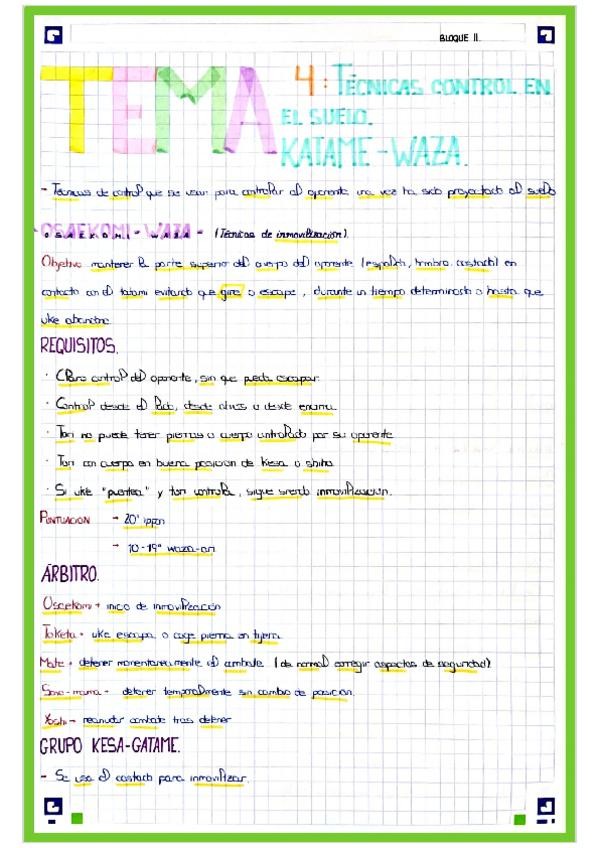 BLOQUE II.
TEMA 4: TÉCNICAS CONTROL EN
EL SUELO.
KATAME-WAZA.
- Técnicas de control que se usan para controlar al oponente una vez ha sido proyectado al suelo
- OSAEKOMI - WAZA - (Técnicas de inmovilización).
Objetivo mantener la parte superior del cuerpo del oponente (espalda, hombro, costado) en
contacto con el tatami evitando que gire o escape, durante un tiempo determinado o hasta que
uke abandone.
REQUISITOS.
· Claro control del oponente, sin que pueda escapar.
· Control desde el lado, desde atrás o desde encima.
· Tori no puede tener piernas o cuerpo controlado por su oponente
· Tori con cuerpo en buena posicion de Kesa o shiho
· Si uke "puentea" y tori controla, sigue siendo inmovilizacion.
PUNTUACION → 20' ippon
→ 10-19" waza-ari
ÁRBITRO.
Osaekomi → inicio de inmovilización
Toketa → uke escapa o coge pierna en tijera
Mate → detener momentaneamente el combate (de normal corregir aspectos de seguridad)
Sono-mama → detener temporalmente sin cambio de posicion.
Yoshi → reanudar combate tras detener
GRUPO KESA-GATAME.
- Se usa el costado para inmovilizar.